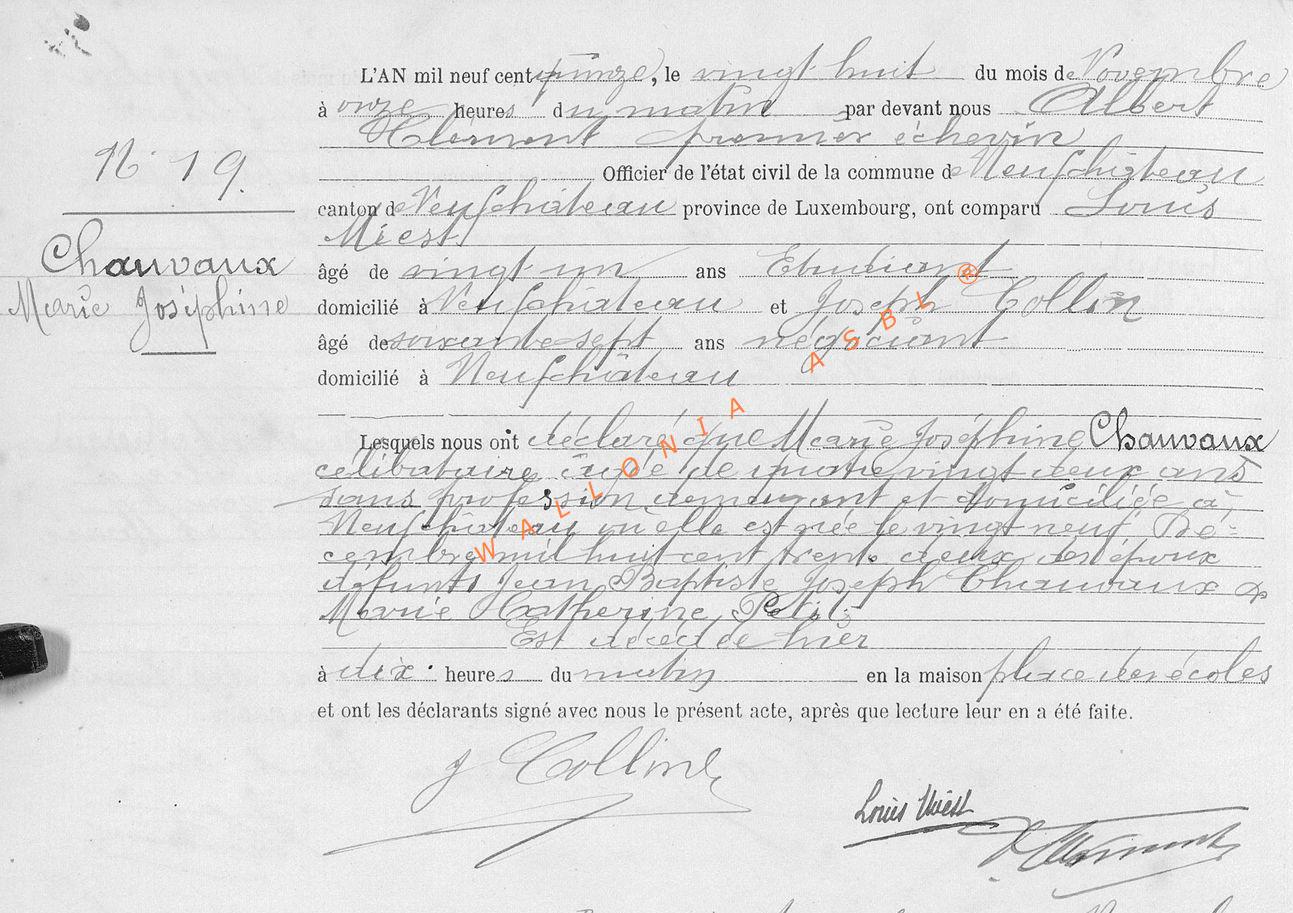 L'AN mil neuf cent quinze, le vingt huit du mois de Novembre
à onze heures du matin par devant nous Albert
Clément premier échevin
Officier de l'état civil de la commune de Neufchâteau
N° 19.
canton de Neufchâteau province de Luxembourg, ont comparu Louis
Miest
Chauvaux
Marie Joséphine
âgé de vingt un ans Etudiant
domicilié à Neufchâteau et Joseph Collin
âgé de soixante sept ans négociant
domicilié à Neufchâteau
Lesquels nous ont déclaré que Marie Joséphine Chauvaux
célibataire âgée de quatre vingt deux ans
sans profession demeurant et domiciliée à
Neufchâteau où elle est née le vingt neuf Dé-
cembre mil huit cent trente deux des époux
défunts Jean Baptiste Joseph Chauvaux &
Marie Catherine Petit
Est décédée hier
à dix heures du matin en la maison place des écoles
et ont les déclarants signé avec nous le présent acte, après que lecture leur en a été faite.
J Collin
Louis Miest
WALLONIA ASBL ®